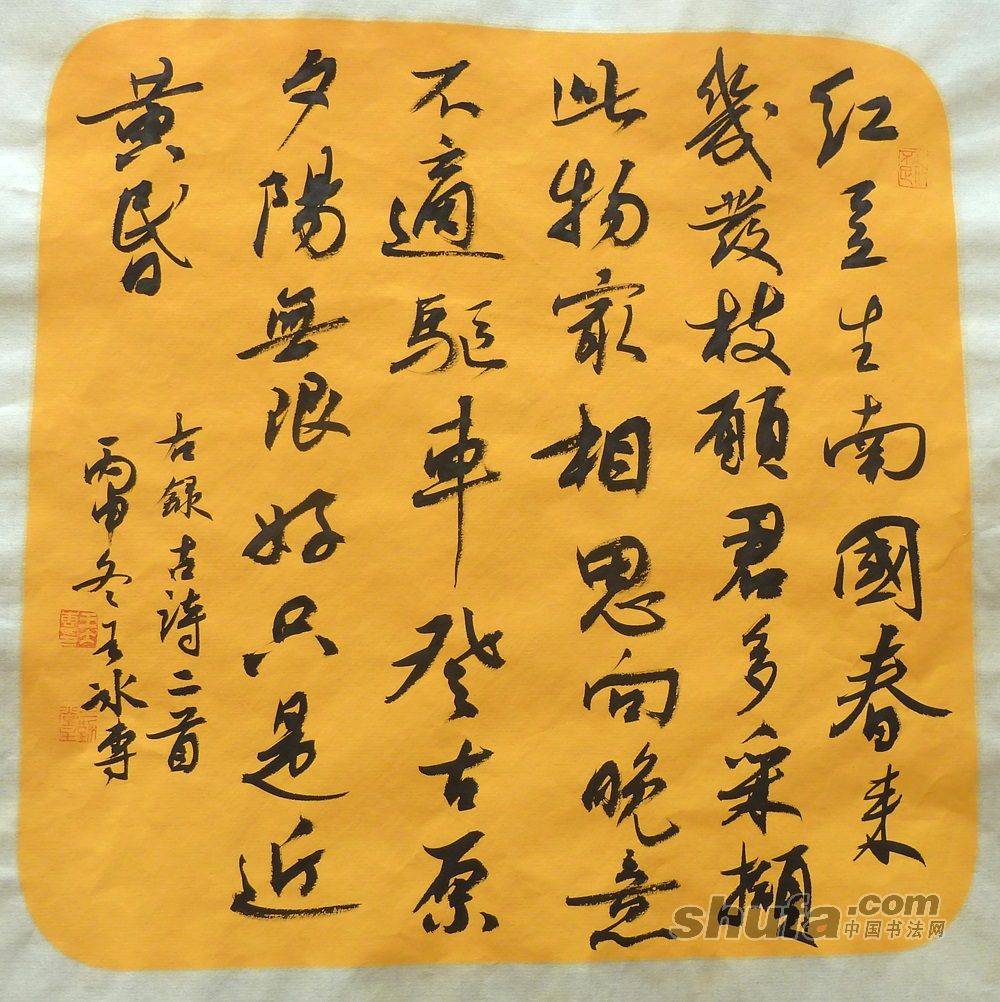 红豆生南國春来
幾發枝願君多采擷
此物最相思向晚意
不適驅車登古原
夕陽無限好只是近
黄昏
右錄古詩二首
丙申冬
shufa.com
中国书法网